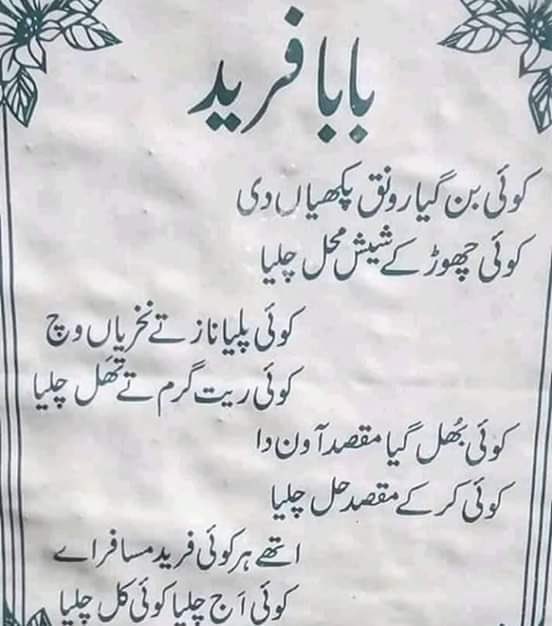 بابا فرید
کوئی بن گیا رونق پکھیاں دی
کوئی چھوڑ کے شیش محل چلیا
کوئی پلیا ناز تے نخریاں وچ
کوئی ریت گرم تے تھَل چلیا
کوئی بھُل گیا مقصد آون دا
کوئی کر کے مقصد حل چلیا
اتھے ہر کوئی فرید مسافر اے
کوئی اَج چلیا کوئی کل چلیا